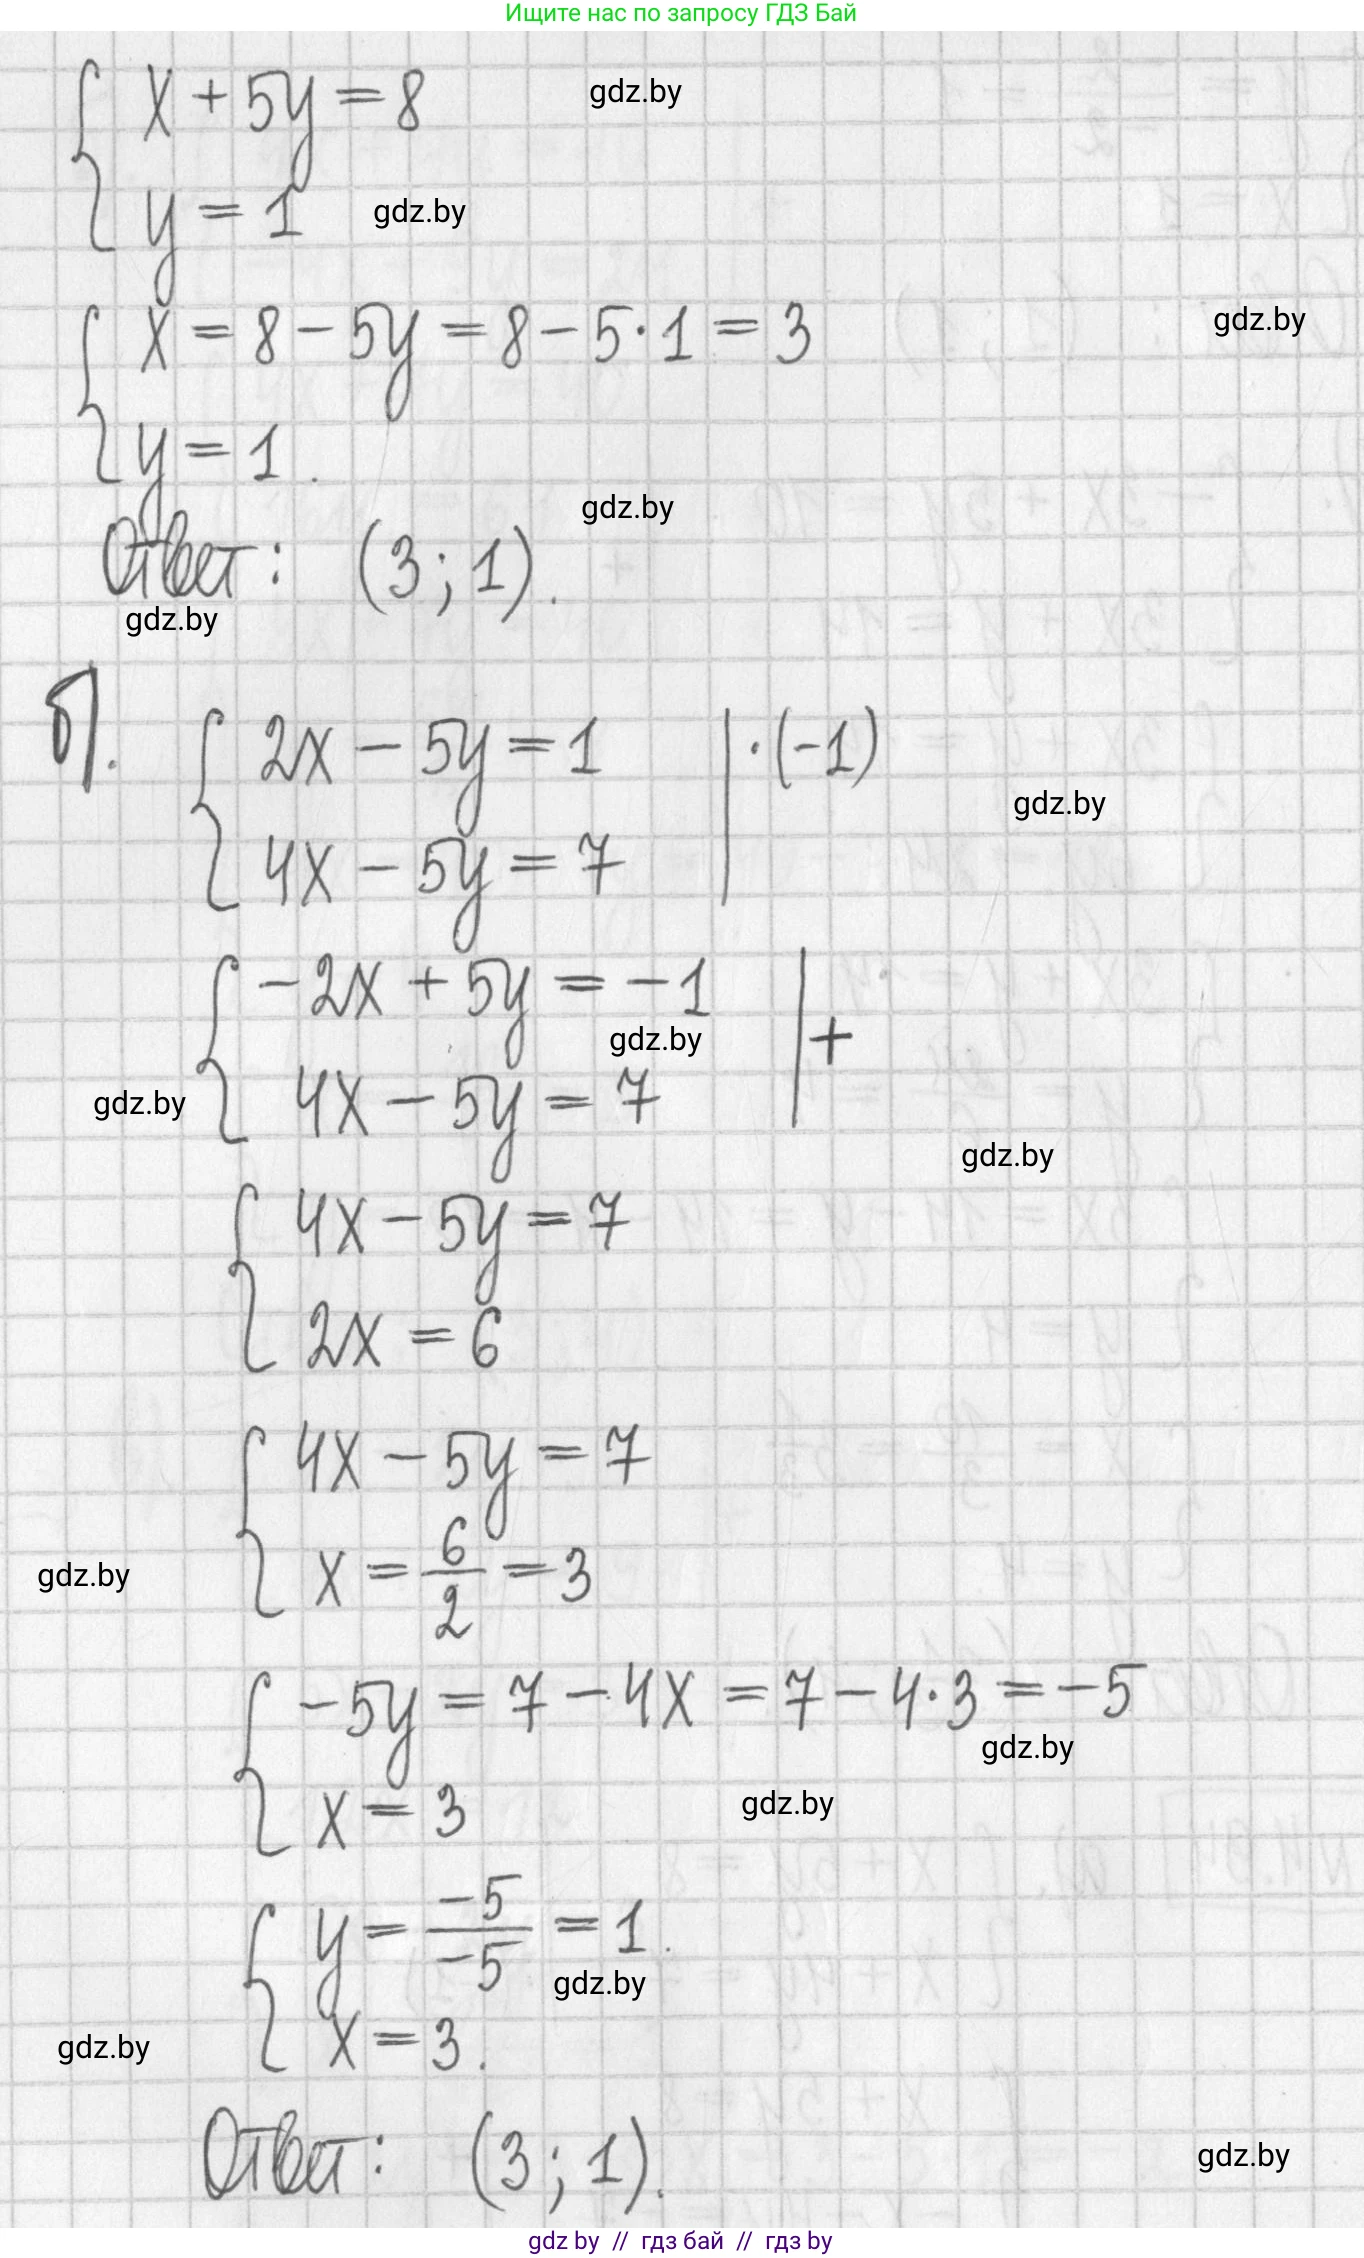 Ищите нас по запросу ГДЗ Бай
x + 5y = 8
gdz.by
y = 1
gdz.by
x = 8 - 5y = 8 - 5·1 = 3
gdz.by
y = 1.
gdz.by
Ответ: (3; 1).
gdz.by
б).
2x - 5y = 1 | ·(-1)
gdz.by
4x - 5y = 7
-2x + 5y = -1 | +
gdz.by
4x - 5y = 7
gdz.by
gdz.by
4x - 5y = 7
2x = 6
4x - 5y = 7
x = 6/2 = 3
gdz.by
-5y = 7 - 4x = 7 - 4·3 = -5
gdz.by
x = 3
gdz.by
y = -5/-5 = 1.
gdz.by
x = 3.
gdz.by
Ответ: (3; 1).
gdz.by
gdz by // гдз бай // гдз by